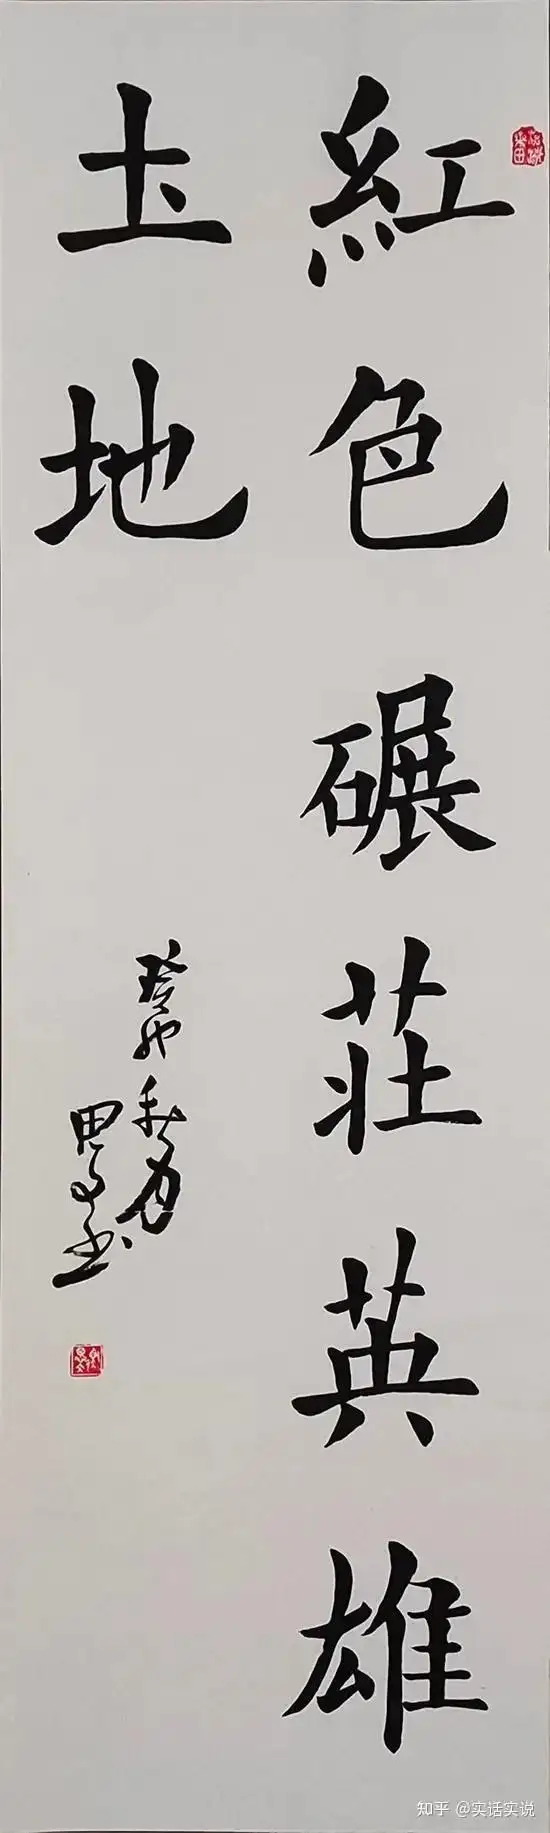 紅色碾莊英雄
土地
癸卯秋月
田
知乎 @实话实说